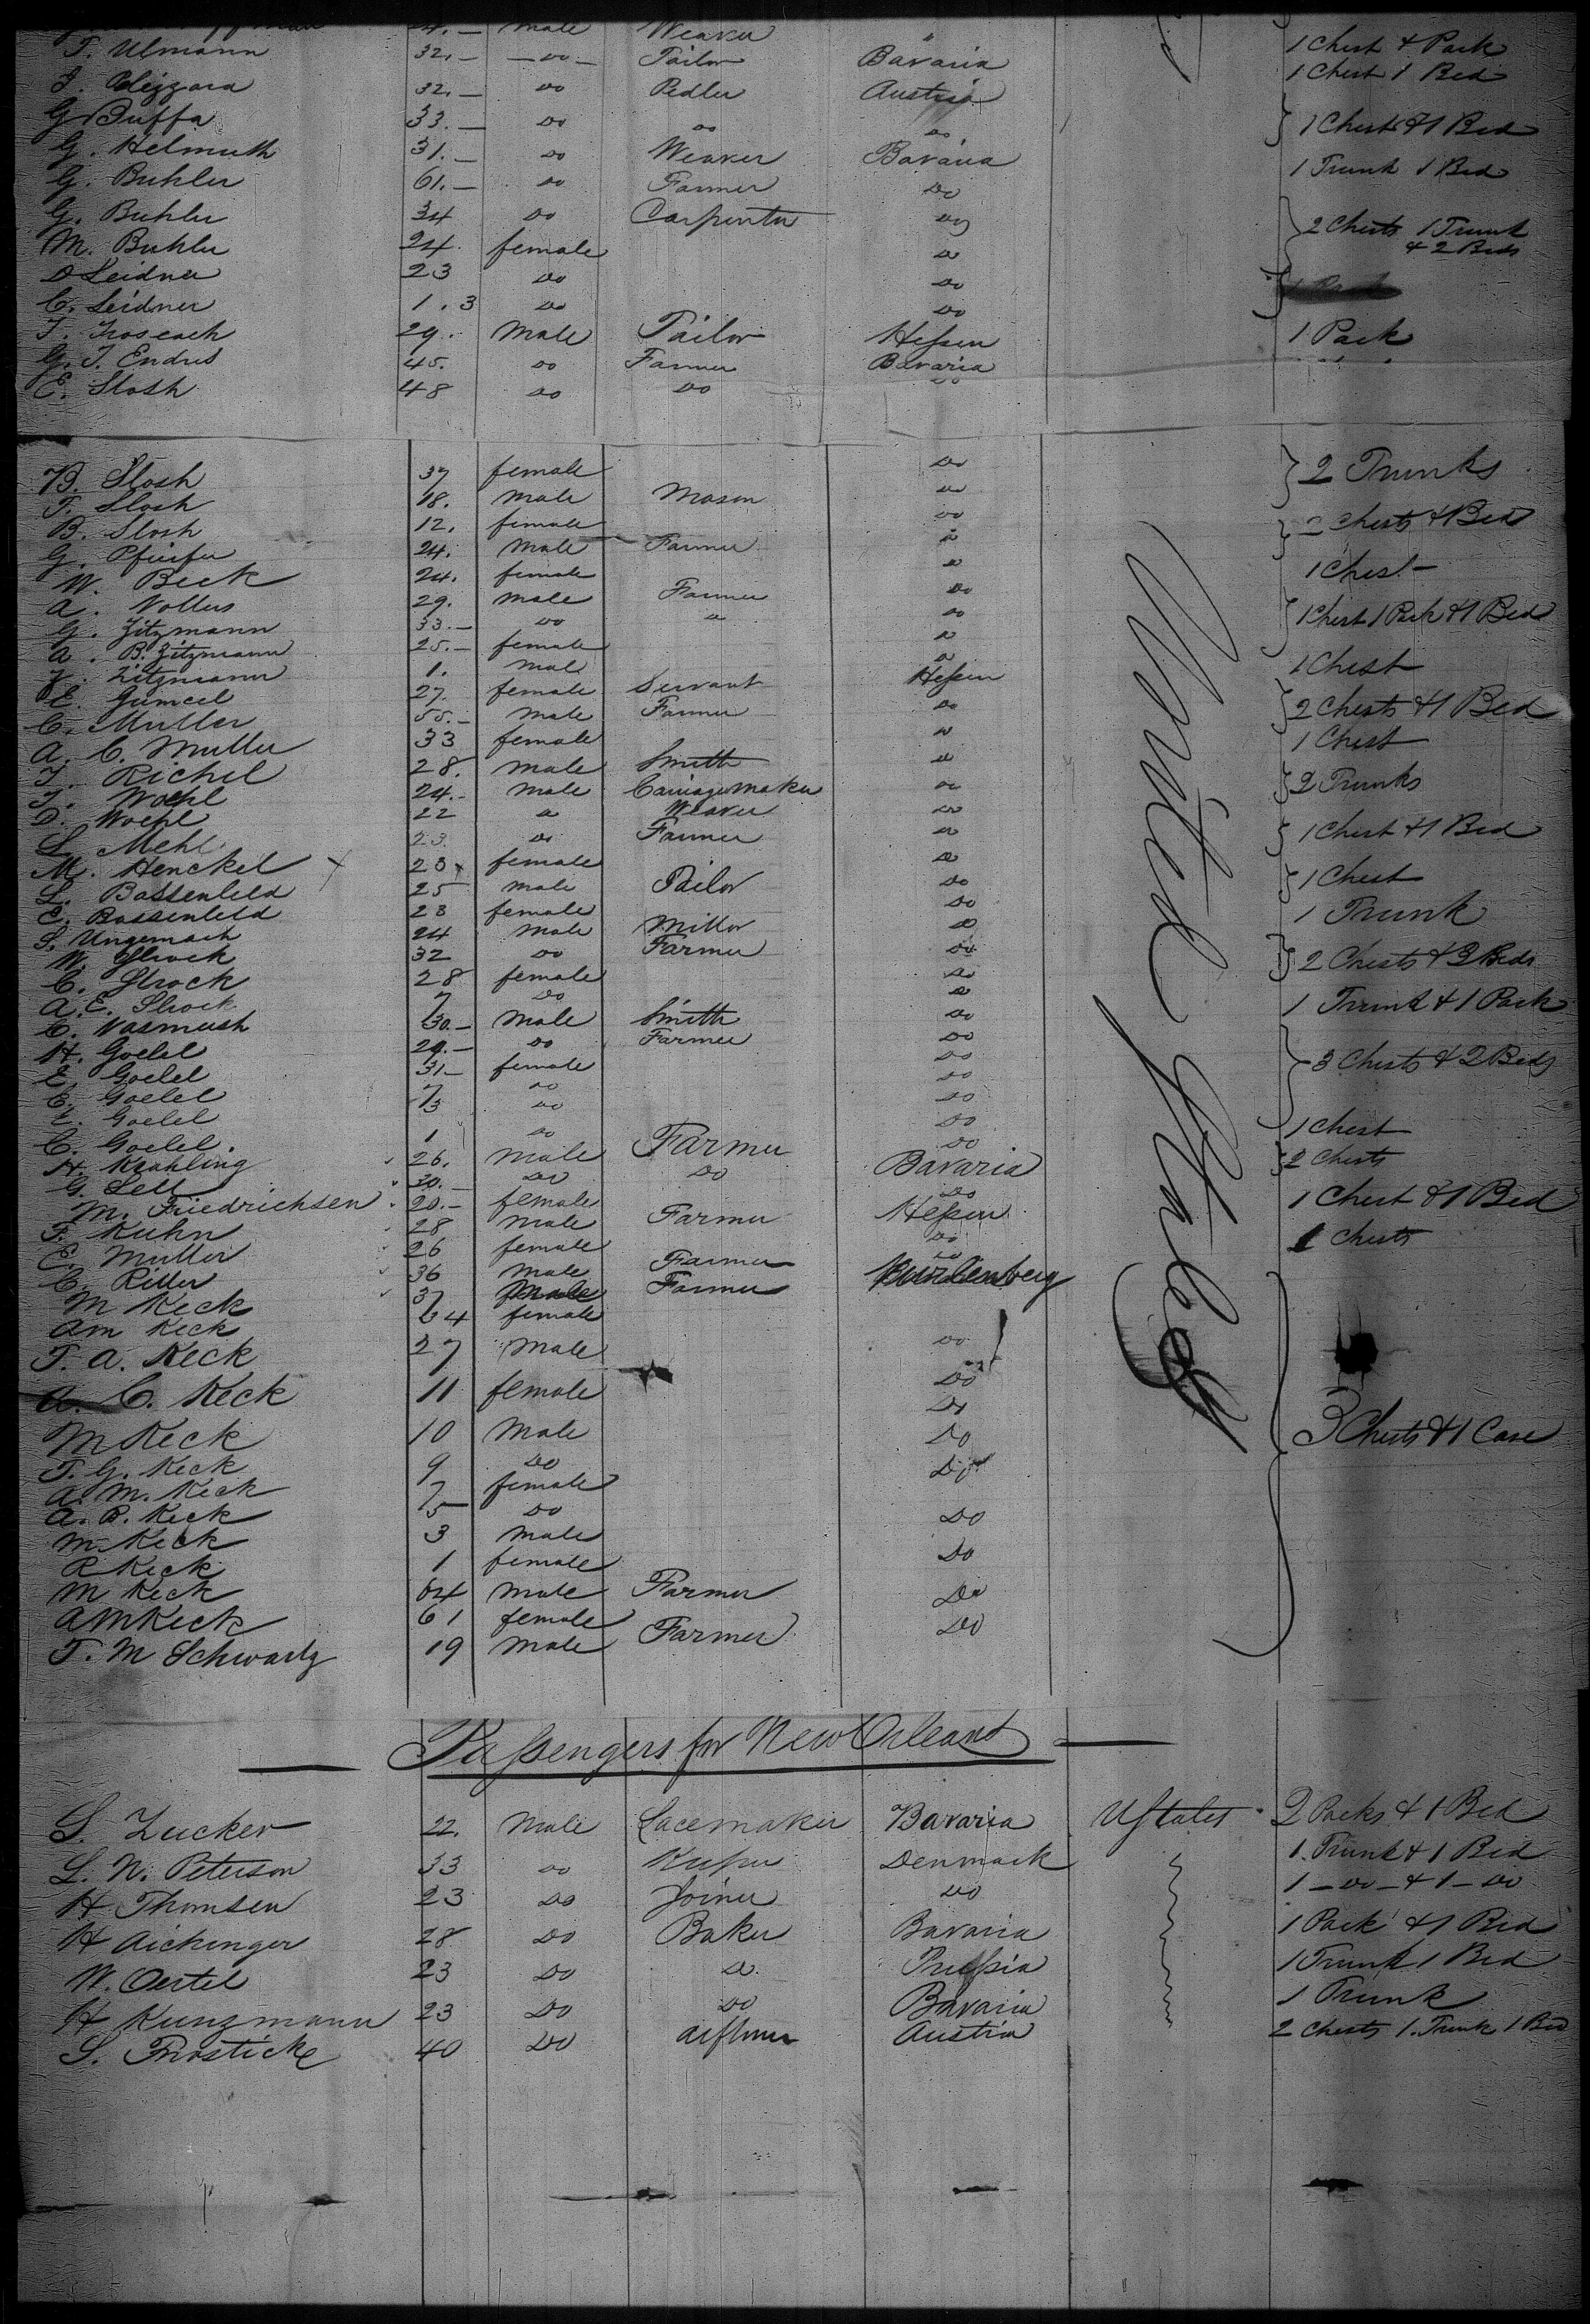 24. — male Weaver "
T. Ulmann 32. — — do — Tailor Bavaria 1 Chest & Pack
32. — do Pedler Austria 1 Chest 1 Bed
G Buffa 33. — do do do 1 Chest & 1 Bed
G. Helmuth 31. — do Weaver Bavaria 1 Trunk 1 Bed
G. Buhler 61. — do Farmer do
G. Buhler 34 do Carpenter do 2 Chests 1 Trunk
M. Buhler 24. female do & 2 Beds
D Leidner 23 do do
C. Leidner 1. 3 do do
29. Male Tailor Hessen 1 Pack
G. T. Endres 45. do Farmer Bavaria
E. Slosh 48 do do do
B. Slosh 37 female do 2 Trunks
F. Slosh 18. male Mason do
B. Slosh 12. female do 2 Chests & Bed
G. Pfeifer 24. Male Farmer do
W. Beck 24. female do 1 Chest —
A. Nollus 29. male Farmer do
G. Zitzmann 33. — do do do 1 Chest 1 Pack & 1 Bed
A. B. Zitzmann 25. — female do
J. Zitzmann 1. mal do 1 Chest
E. Gumcel 27. female Servant Hessen
C. Muller 55. — male Farmer do 2 Chests & 1 Bed
A. C. Muller 33 female do 1 Chest
J. Richel 28. male Smith do
J. Woehl 24. — male Cariagemaker do 2 Trunks
D. Woehl 22 do Weaver do
L. Mehl 23. do Farmer do 1 Chest & 1 Bed
M. Henckel x 23 female do
L. Bassenfeld 25 male Tailor do 1 Chest
C. Bassenfeld 23 female do 1 Trunk
S. Ungemach 24 male Miller do
W. Strock 32 do Farmer do 2 Chests & 3 Beds
C. Strock 28 female do
A. E. Strock 7 do do 1 Trunk & 1 Pack
C. Vasmush 30. — Male Smith do
H. Goelel 29. — do Farmer do
E. Goelel 31 — female do 3 Chests & 2 Beds
E. Goelel 7 do do
E. Goelel 3 do do
C. Goelel. 1 do do 1 Chest
H. Krahling 26. male Farmer do 2 Chests
G. Sell 30. — do do Bavaria
M. Friedrichsen 20. — female do 1 Chest & 1 Bed
F. Kuhn 28 male Farmer Hessen
E. Muller 26 female do Chests
C. Ritter 36 male Farmer do
M Keck 37 male Farmer Wurtemberg
Am Keck 34 female
T. A. Keck 27 Male do
A. C. Keck 11 female Do
M Keck 10 Male Do 3 Chests & 1 Case
T. G. Keck 9 Do Do
A. M. Keck 7 female Do
A. B. Keck 5 do
M. Keck 3 male Do
R Keck 1 female Do
M Keck 64 male Farmer Do
AM Keck 61 female Do
T. M Schwartz 19 Male Farmer
— Passengers for New Orleans —
S. Zucker 22. Male Lacemaker Bavaria UStates 2 Packs & 1 Bed
L. N. Peterson 33 do Denmark 1. Trunk & 1 Bed
H Thomsen 23 Do Joiner Do 1 — do — & 1 — Do
H Aichinger 28 Do Baker Bavaria 1 Pack & 1 Bed
W. Oertel 23 Do do Prussia 1 Trunk 1 Bed
H Kunzmann 23 Do Do Bavaria 1 Trunk
S. Prosticke 40 Do Austria 2 Chests 1. Trunk 1 Bed